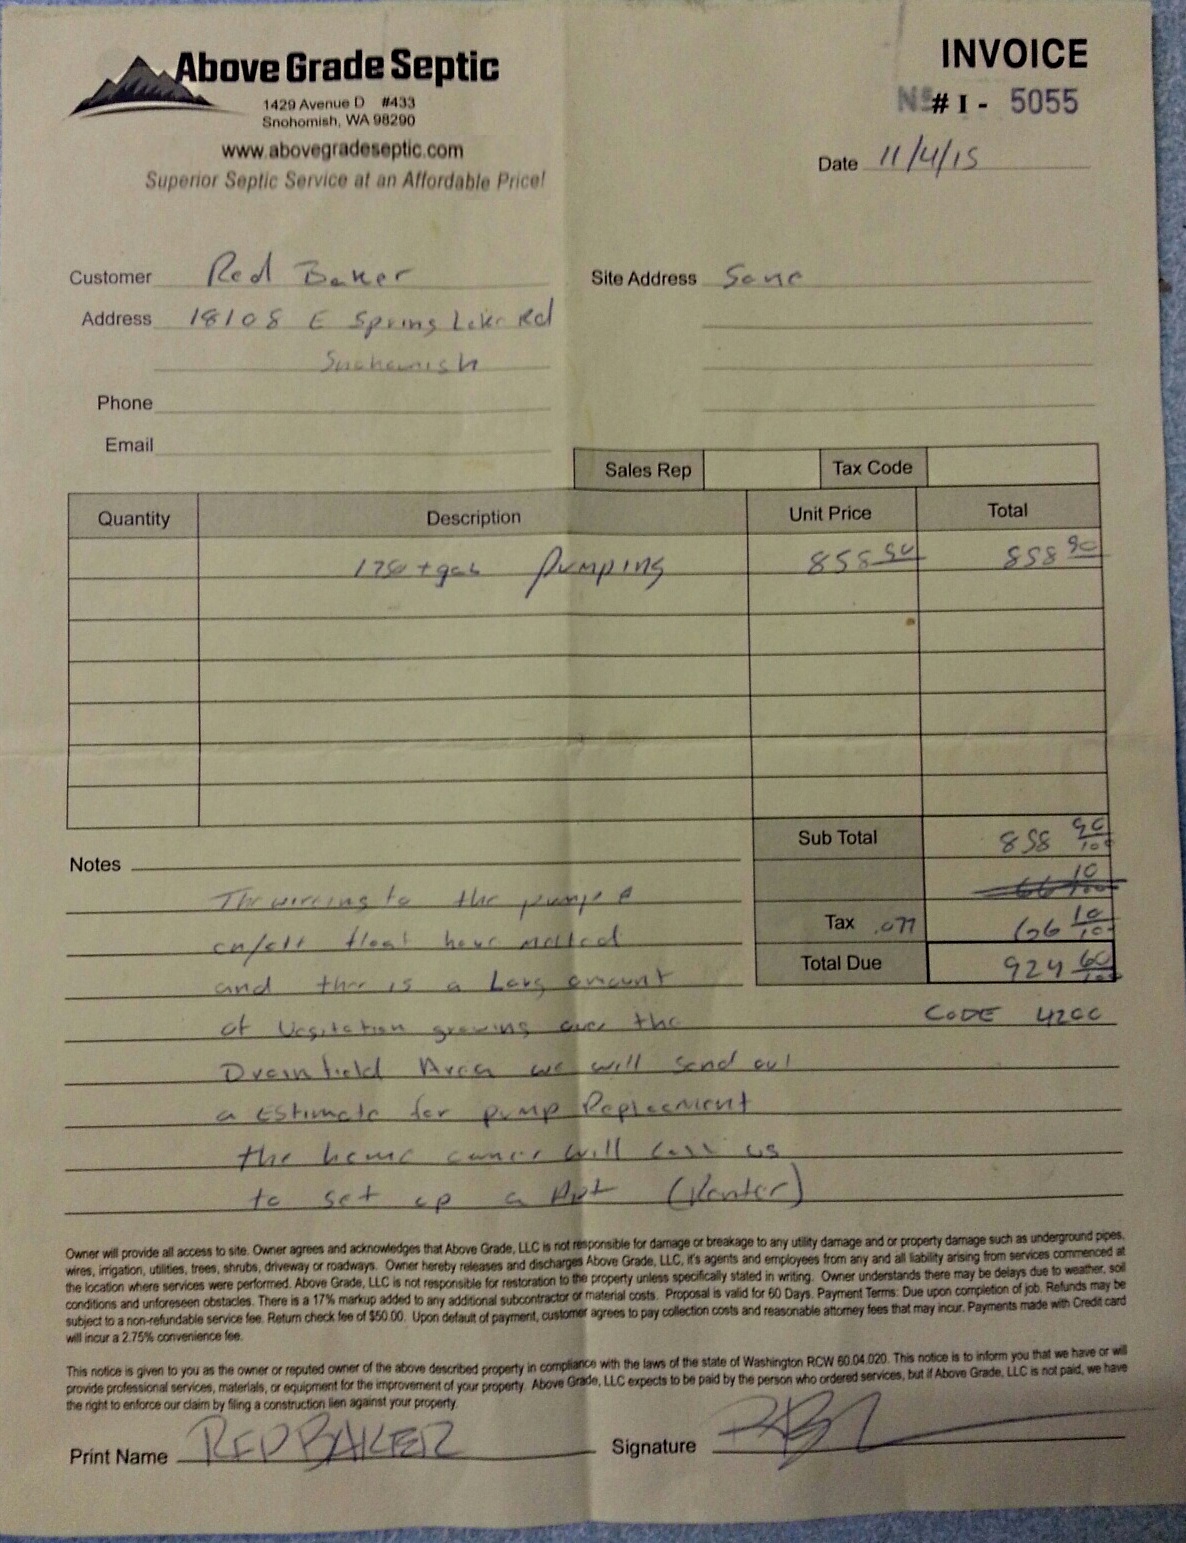 Above Grade Septic
1429 Avenue D #433
Snohomish, WA 98290
www.abovegradeseptic.com
Superior Septic Service at an Affordable Price!
INVOICE
№# I - 5055
Date 11/4/15
Customer Red Baker
Address 18108 E Spring Lake Rd
Snohomish
Phone
Email
Site Address Same
Sales Rep Tax Code
Quantity Description Unit Price Total
pumping 858 90 858 90
Sub Total 858 90/100
66 10/100
Tax .077 66 10/100
Total Due 924 60/100
CODE
Notes
The wirring to the pump &
on/off float have melted
and ther is a Larg amount
of Vegitation growing over the
Drainfield Area we will send out
a Estimate for pump Replacement
the home owner will call us
to set up a Apt (Renter)
Owner will provide all access to site. Owner agrees and acknowledges that Above Grade, LLC is not responsible for damage or breakage to any utility damage and or property damage such as underground pipes,
wires, irrigation, utilities, trees, shrubs, driveway or roadways. Owner hereby releases and discharges Above Grade, LLC, it's agents and employees from any and all liability arising from services commenced at
the location where services were performed. Above Grade, LLC is not responsible for restoration to the property unless specifically stated in writing. Owner understands there may be delays due to weather, soil
conditions and unforeseen obstacles. There is a 17% markup added to any additional subcontractor or material costs. Proposal is valid for 60 Days. Payment Terms: Due upon completion of job. Refunds may be
subject to a non-refundable service fee. Return check fee of $50.00. Upon default of payment, customer agrees to pay collection costs and reasonable attorney fees that may incur. Payments made with Credit card
will incur a 2.75% convenience fee.
This notice is given to you as the owner or reputed owner of the above described property in compliance with the laws of the state of Washington RCW 60.04.020. This notice is to inform you that we have or will
provide professional services, materials, or equipment for the improvement of your property. Above Grade, LLC expects to be paid by the person who ordered services, but if Above Grade, LLC is not paid, we have
the right to enforce our claim by filing a construction lien against your property.
Print Name RED BAKER
Signature